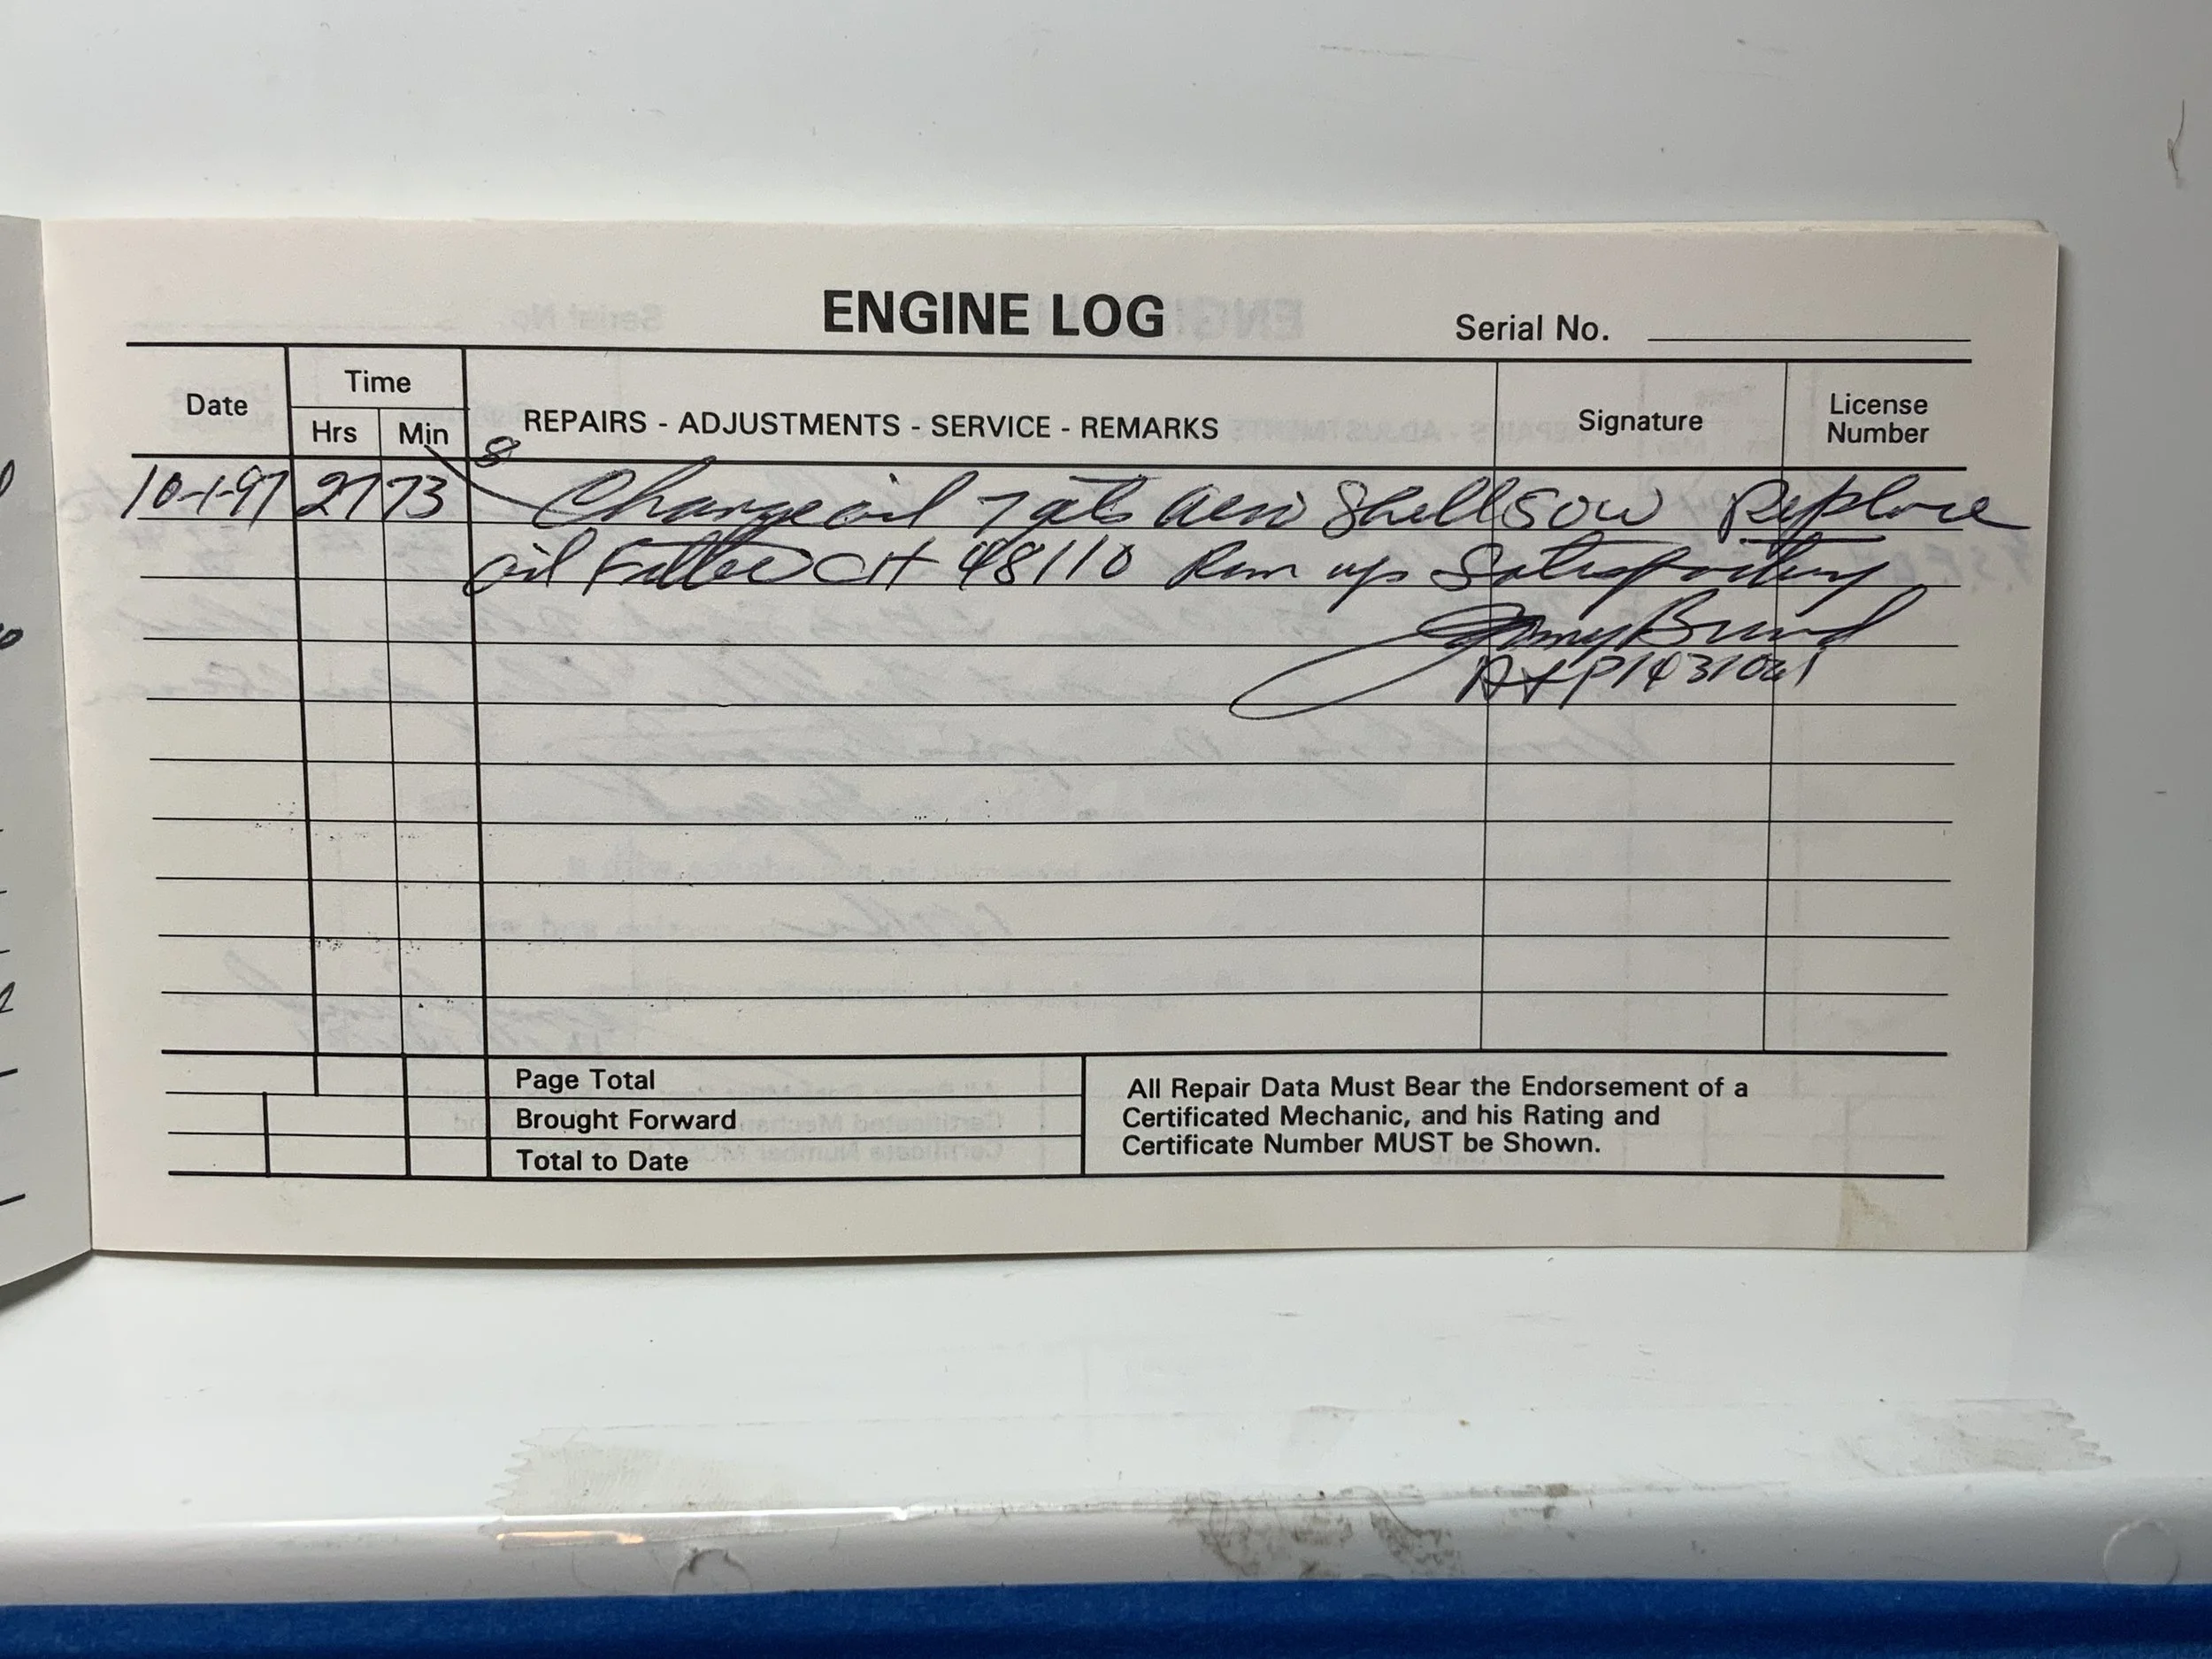 ENGINE LOG
Serial No.
Date
Time
Hrs Min
REPAIRS - ADJUSTMENTS - SERVICE - REMARKS
Signature
License
Number
8
10-1-97 2773 Change oil 7 qts Aero Shell 50W Replace
oil Filter CH 48110 Run up Satisfactory
A+P
Page Total
Brought Forward
Total to Date
All Repair Data Must Bear the Endorsement of a
Certificated Mechanic, and his Rating and
Certificate Number MUST be Shown.